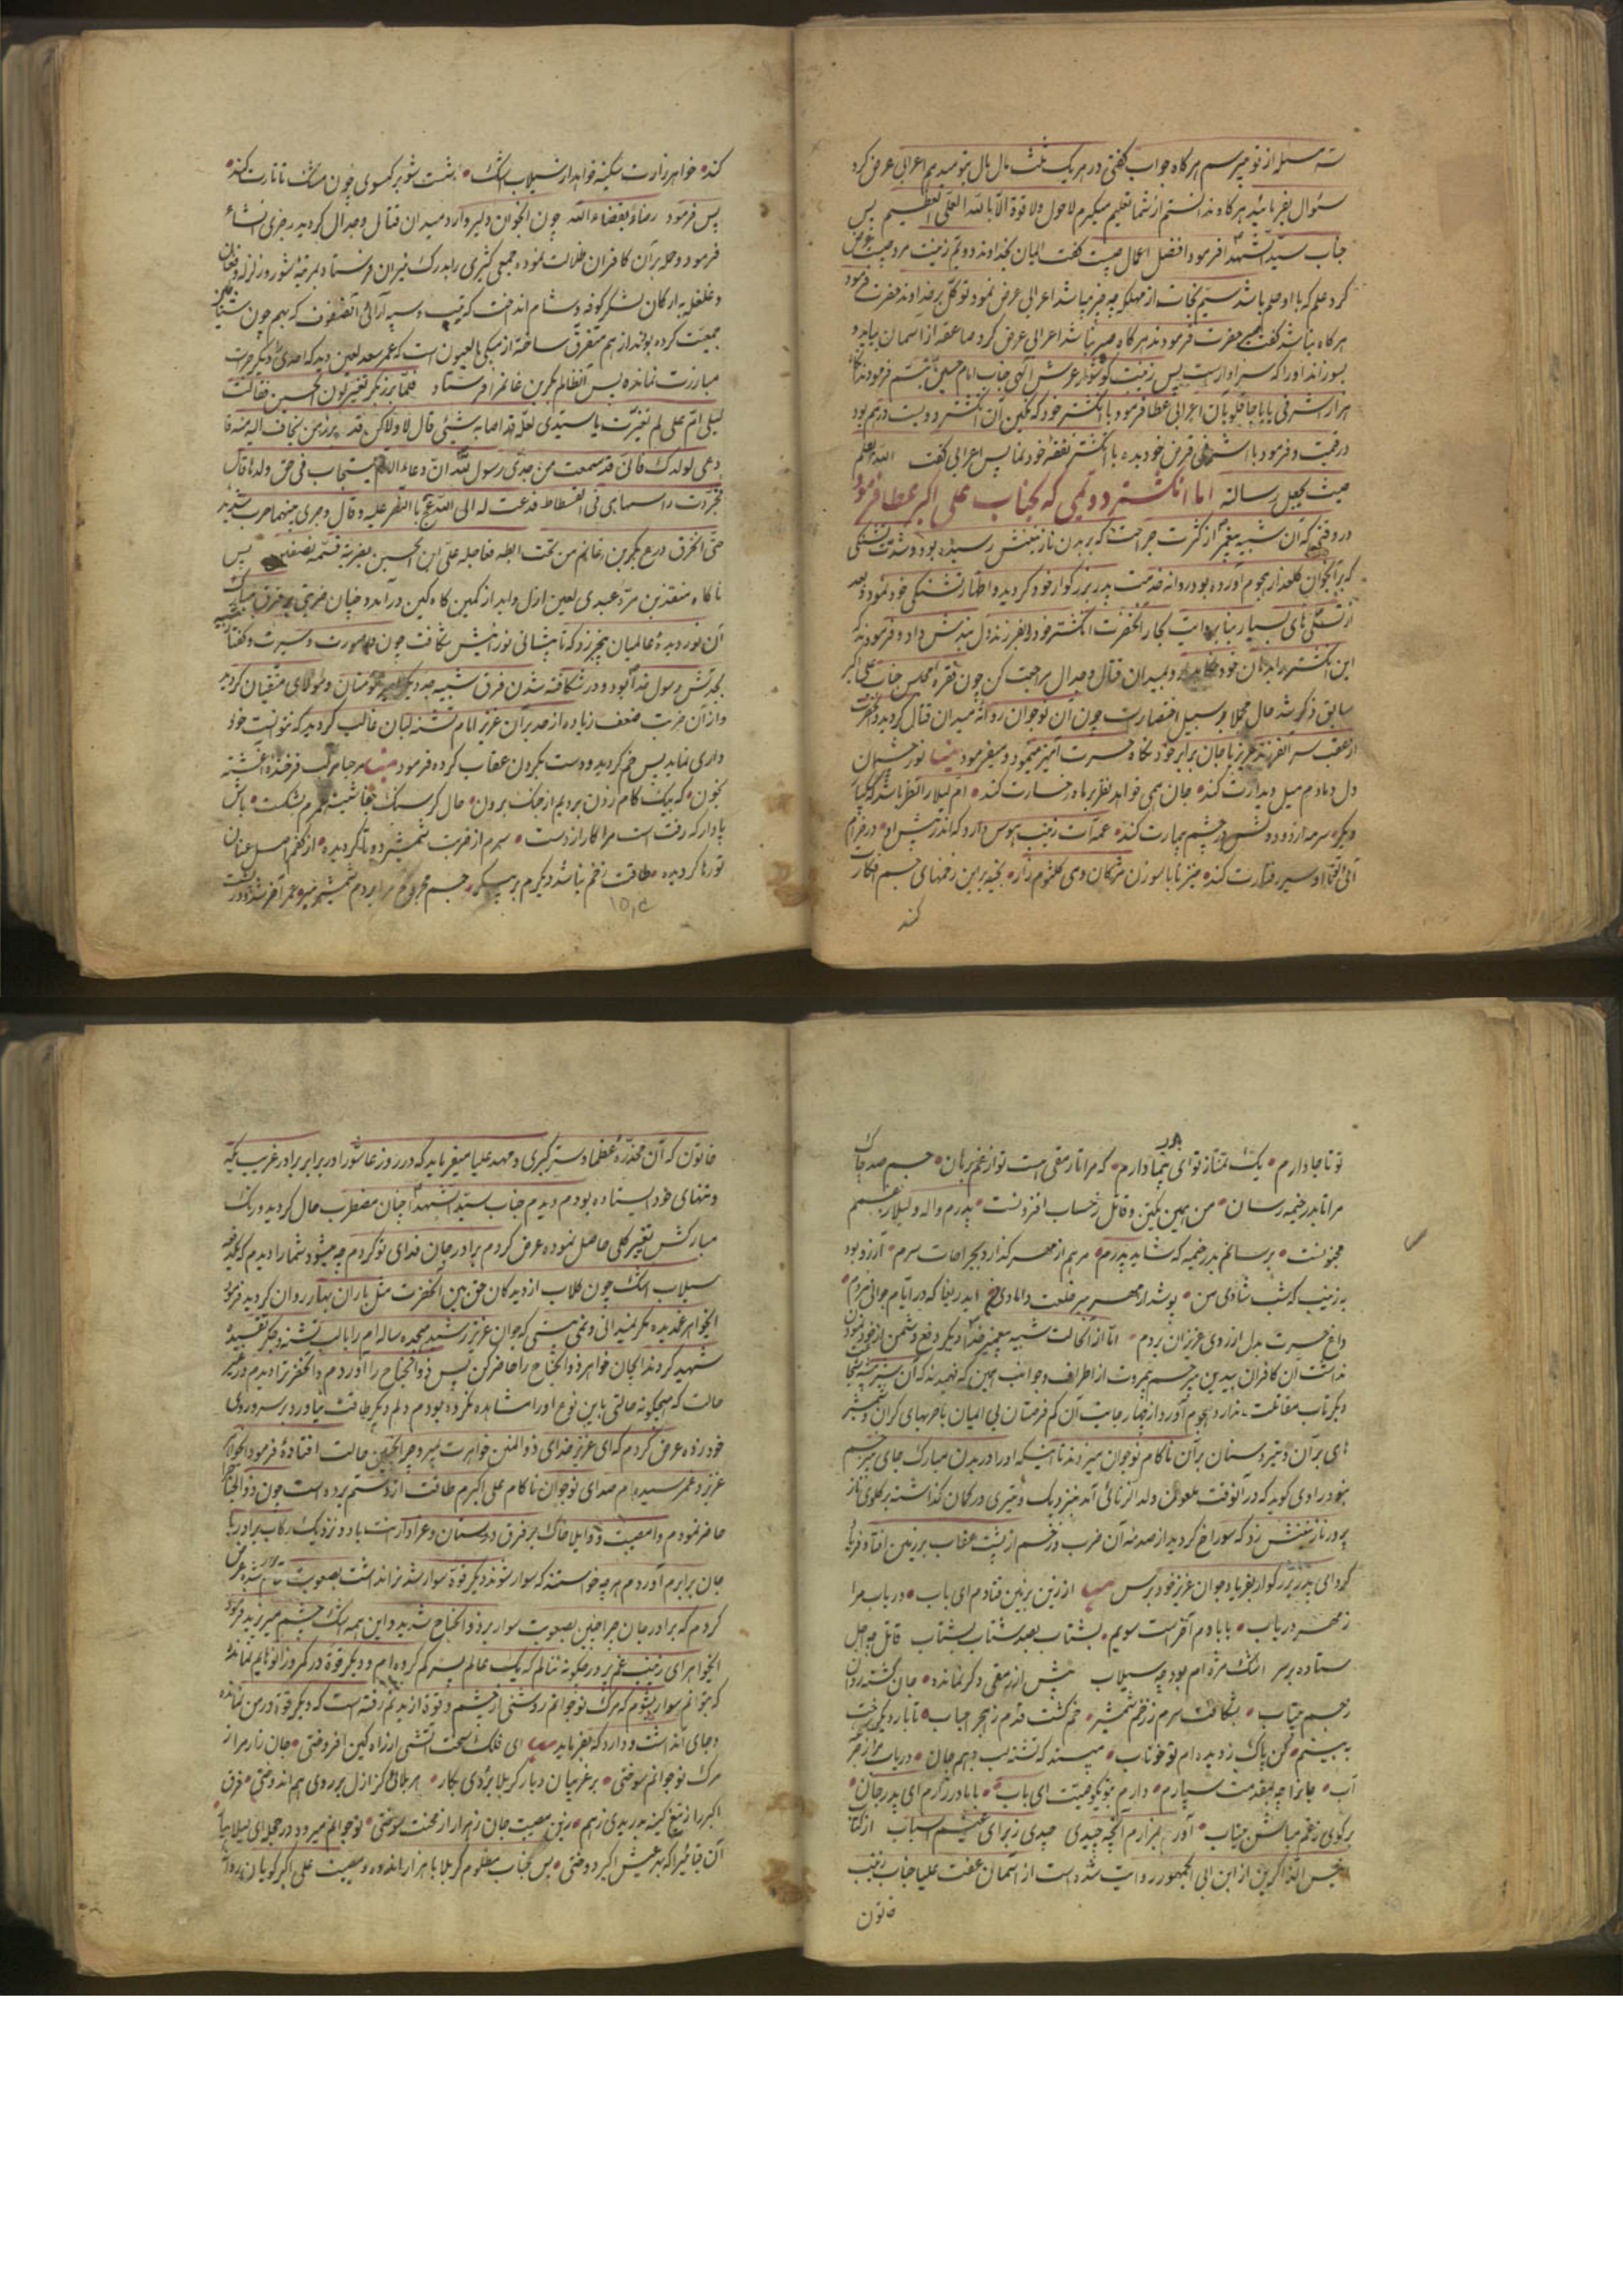 سه مسئله از تو میپرسم هرگاه جواب گفتی در هر یک ثلث مال بتو میدهم اعرابی عرض کرد
سئوال بفرمائید هرگاه ندانستم از شما تعلیم میگیرم لاحول ولا قوة الا بالله العلی العظیم پس
جناب سیدالشهدا فرمود افضل اعمال چیست گفت ایمان بخداوند دویم زینت مرد چیست عرض
کرد علم که با او حلم باشد سیم نجات از مهلکه چه چیز میباشد اعرابی عرض نمود توکل بر خداوند حضرت فرمود
هرگاه نباشد گفت حضرت فرمودند هرگاه صبر نباشد اعرابی عرض کرد صاعقه از آسمان بیاید و
بسوزاند او را که سزاوار است پس زینت گوشوار عرش الهی جناب امام حسین تبسم فرمودند
هزار اشرفی با بان اعرابی عطا فرمود با انگشتر خود که نگین آن انگشتر دویست درهم بود
در قیمت و فرمود با اشرفی قرض خود بده با انگشتر نفقه خود نما پس اعرابی گفت الله اعلم
حیث یجعل رسالته اما انگشتر دویمی که بجناب علی اکبر عطا فرمود
در وقتی که آن شبیه پیغمبر از کثرت جراحت که بر بدن نازنینش رسیده بود و شدت تشنگی
که بر آنجوان گلعذار هجوم آورده بود روانه خدمت پدر بزرگوار خود گردید و اظهار تشنگی خود نمود و بعد
از تسلی های بسیار بنا بروایت بحار آنحضرت انگشتر خود را بفرزند دل بندش داد و فرمودند که
این انگشتر را بدهان خود بگذار و بمیدان قتال و جدال مراجعت کن چون فقره مجلس جناب علی اکبر
سابق ذکر شد حال مجملا بر سبیل اختصار است چون آن نوجوان روانه میدان قتال گردید و آنحضرت
از عقب سر آنفرزند عزیز با جان برابر خود نگاه حسرت آمیز مینمود و میفرمود نور چشمان
دل و مادم میل دیدارت کند جان همی خواهد نظر بر ماه رخسارت کند ام لیلا را نظر باشد که یکبار
دیگر سرمه از دود دلش در چشم بیمارت کند عمه ات زینب هوس دارد که اندر پیش او در خرام
آئی تماشا و سیر رفتارت کند میزند با سوزن مژگان دمی کلثوم زار بخیه بر این زخمهای جسم افکارت
کند
کند خواهر زارت سکینه خواهد از سیلاب اشک شست شو بر گیسوی چون مشک تاتارت کند
پس فرمود رضاء بقضاء الله چون آنجوان دلیر وارد میدان قتال و جدال گردید رجزی انشاء
فرمود و حمله بر آن کافران ضلالت نمود و جمعی کثیری را بدرک نیران فرستاد بمرتبه شور و زلزله و فغان
و غلغله بارکان لشکر کوفه و شام انداخت که ترتیب و سپه آرائی آنصفوف که بهم چون
جمعیت کرده بودند از هم متفرق ساخته از مبکی العیون است که عمر سعد لعین دید که احدی دیگر جرات
مبارزت نمانده پس آنظالم بکر بن غانم را فرستاد فلما برز بکر تغیر لون الحسین فقالت
لیلی ام علی لم تغیرت یا سیدی لعله قد اصابه شئی قال لا ولاکن قد برز من یخاف الیه منه فا
دعی لولدک فانی قد سمعت من جدی رسول الله ان دعاء الام یستجاب فی حق ولدها قال
فجردت راسها فی الفسطاط فدعت له الی الله عج بالنصر علیه و قال و جری بینهما حرب شدید
حتی انخرق درع بکر بن غانم من تحت ابطه فعاجله علی ابن الحسین بضربة قسمه نصفین پس
ناگاه منقذ بن مره عبدی لعین ازل و ابد از کمین گاه کین درآمد و چنان ضربتی بر فرق مبارک
آن نور دیده عالمیان بیخبر زد که تا پیشانی نورانیش شکافت چون در صورت و سیرت و گفتار
بجدش رسول خدا بود و در شکافته شدن فرق شبیه جد دیگر مؤمنان و مولای متقیان گردید
و از آن ضربت ضعف زیاده از حد بر آن عزیز امام تشنه لبان غالب گردید که نتوانست خود
داری نماید پس خم گردید و دست بگردن عقاب کرده فرمود مرحبا مرکب فرخنده آغشته
بخون که بیک گام زدن بردیم از جنگ برون حال کز سنگ جفا شیشه عمرم بشکست باش
پادار که رفت است مرا کار از دست سرم از ضربت شمشیر دو تا گردیده از کفم اصل عنان
تو رها گردیده طاقت زخم نباشد دیگرم بر پیکر جسم مجروح مرا بر دم شمشیر مبر عمر آخر شده و در
تو تا جا دارم یک تمنا ز تو ای پیما دارم که مرا تا رمقی هست تو از غم برهان جسم صد چاک
مرا تا بدر خیمه رسان من همین یکتن و قاتل ز حساب افزونست پدرم واله و لیلا ز غمم
مجنونست برسانم بدر خیمه که شاید پدرم مرهم از مهر گذارد بجراحات سرم آرزو بود
به زینب که شب شادی من پوشد از مهر ببر خلعت دامادی ایدریغا که در ایام جوانی مردم
داغ حسرت بدل از روی عزیزان بردم اما از آنحالت شبیه پیغمبر خدا دیگر دفع دشمن از خود نمودن
نداشت آن کافران بیدین بیرحم بیمروت از اطراف و جوانب همین که فهمیدند که آن
دیگر تاب مقاتلت ندارد هجوم آورد از چهار جانب آن کم فرصتان بی ایمان با حربهای گران و شمشیر
های بران و تیر و سنان بر آن ناکام نوجوان میزدند تا اینکه او را در بدن مبارک جای بیزخم
نبود راوی گوید که در آنوقت ملعون ولدالزنائی آمد نزدیک و تیری در کمان گذاشته بر گلوی ناز
پرور نازنینش زد که سوراخ گردید از صدمه آن ضرب و زخم از پشت عقاب بر زمین افتاد فریاد
کرد ای پدر بزرگوار بفریاد جوان عزیز خود برس از زین بزمین فتادم ای باب دریاب مرا
ز مهر دریاب بابا دم آخر است سویم بشتاب بصد شتاب بشتاب قاتل چه اجل
ستاده بر سر اشک مژه ام بود چه سیلاب بیش از رمقی دگر نمانده جان گشته روان
ز جسم بیتاب بشکافت سرم ز زخم شمشیر خم گشت قدم ز هجر احباب تا بار دیگر رخت
به بینم کن پاک ز دیده ام تو خوناب مپسند که تشنه لب دهم جان دریاب مرا ز جرعه
آب جانرا چه بمقدمت سپارم دارم بتو یک وصیت ای باب با مادر زارم ای پدر جان
برگوی ز غم مباش بیتاب آور بمزارم آنچه چیدی چیدی ز برای عیشم اسباب از کتاب
مجلس الذاکرین از ابن ابی الجمهور روایت شده است از آسمان عفت علیا جناب زینب
خاتون
خاتون که آن مخدره عظما و ستر کبری و مهد علیا میفرماید که در روز عاشورا در برابر برادر غریب یکه
و تنهای خود ایستاده بودم دیدم جناب سیدالشهدا چنان مضطرب حال گردید و رنگ
مبارکش تغییر کلی حاصل نموده عرض کردم برادر جان فدای تو گردم چه میشود شما را دیدم که یکدفعه
سیلاب اشک چون گلاب از دیدگان حق بین آنحضرت مثل باران بهار روان گردید فرمود
ایخواهر غمدیده مگر نمیدانی و نمی بینی که جوان عزیز رشید هیجده ساله ام را با لب تشنه و جگر تفتیده
شهید کردند ایجان خواهر ذوالجناح را حاضر کن پس ذوالجناح را آوردم و آنحضرترا دیدم در تغیر
حالت که هیچگونه حالتی باین نوع او را مشاهده نکرده بودم دلم دیگر طاقت نیاورد بر سر و روی
خود زده عرض کردم که ای عزیز خدای ذوالمنن خواهرت بمیرد چرا چنین حالت افتاده فرمود ایخواهر
عزیز و غمر سیده ام صدای نوجوان ناکام علی اکبرم طاقت از دستم برده است چون ذوالجناح را
حاضر نمودم وا مصیبتا و واویلا خاک بر فرق دوستان و عزادارانت باد و نزدیک رکاب برادر با
جان برابرم آوردم هر چه خواستند که سوار شوند دیگر قوه سوار شدن نداشت بصعوبت تمام عرض
کردم که برادر جان چرا چنین بصعوبت سوار بر ذوالجناح شدید و این همه اشک چشم میریزید فرمود
ایخواهر ای زینب غم پرور چگونه ننالم که یک عالم پسر گم کرده ام و دیگر قوه در کمر و زانوهایم نمانده
که بتوانم سوار بشوم که مرگ نوجوانم روشنی از چشم و قوة از بدنم رفته است که دیگر قوه در من نمانده
و جای آنداشت و دارد که بفرماید ای فلک سخت آتشی از راه کین افروختی جان زار مرا ز
مرگ نوجوانم سوختی بر غریبان دیار کربلا بردی بکار هر بلائی کز ازل بر روی هم اندوختی فرق
اکبر را ز تیغ کینه بدریدی ز هم زین مصیبت جان زهرا را ز محنت سوختی نوجوانم میرود در حجله ای لیلا بیا
آن قبائیرا که بهر عیش اکبر دوختی پس جناب مظلوم کربلا با هزار اندوه و مصیبت علی اکبر گویان روانه